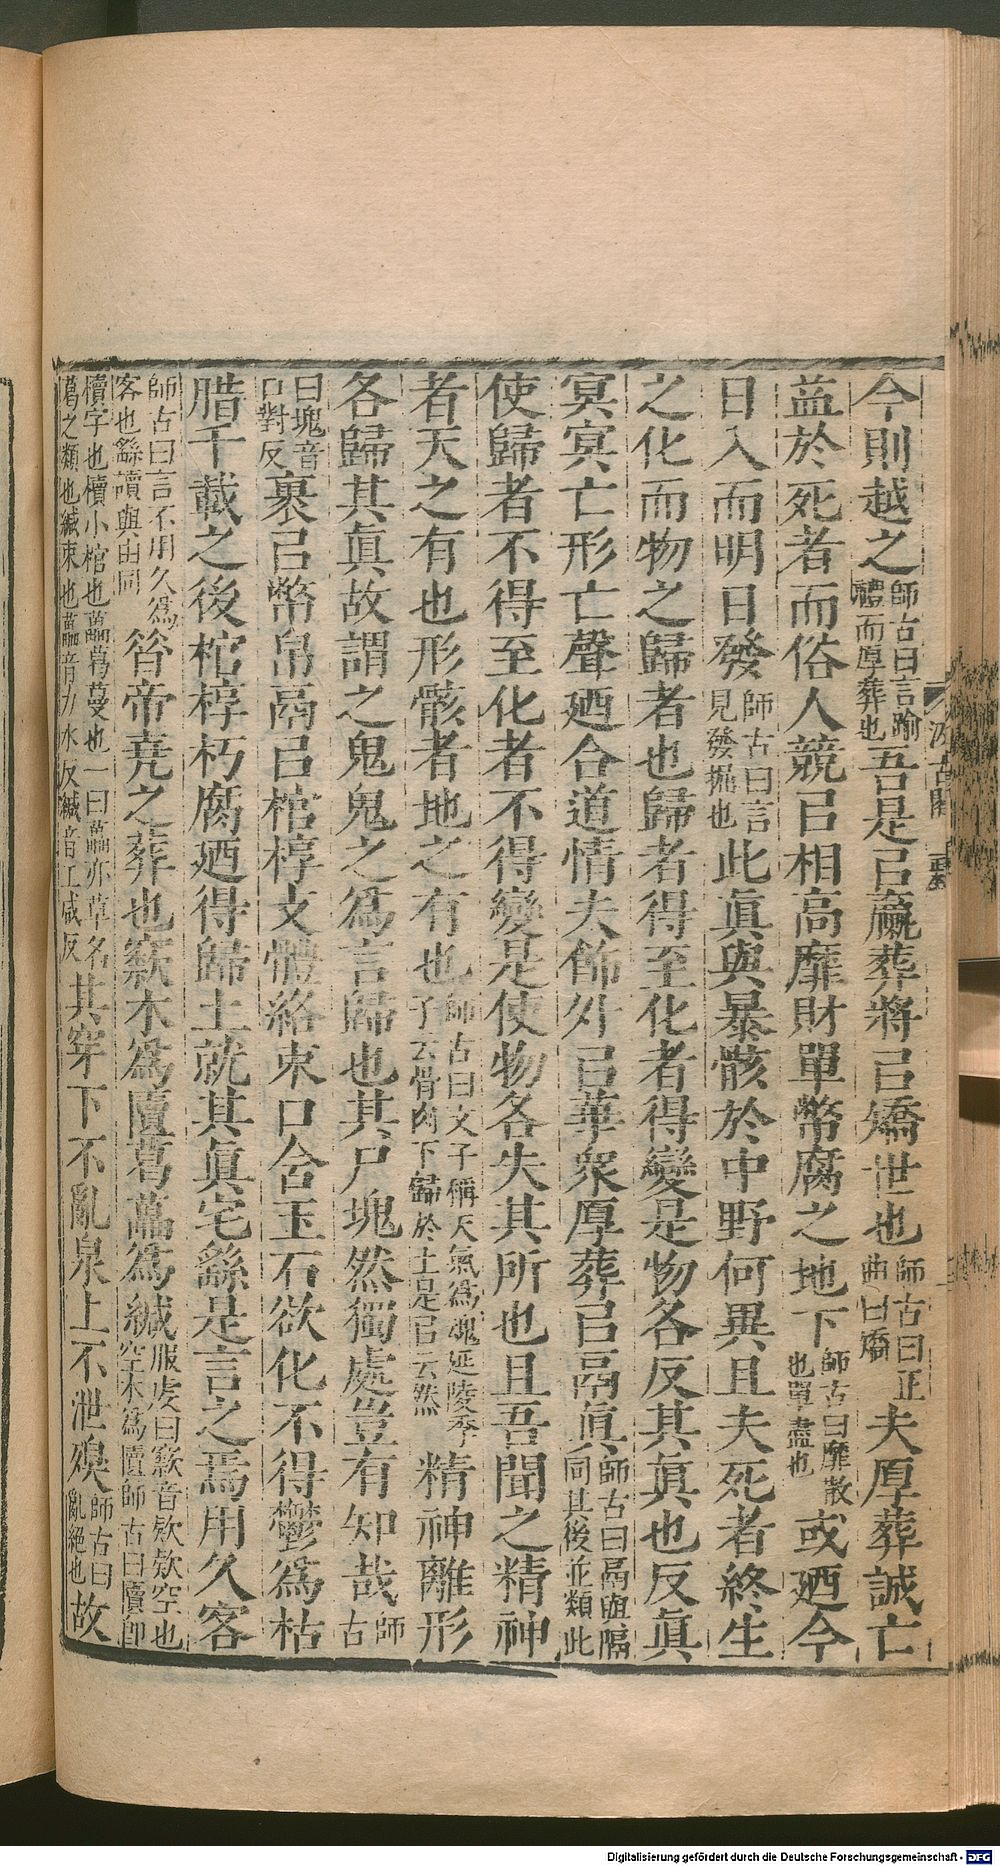 今則越之師古曰言踰禮而厚葬也吾是㠯臝葬將㠯矯世也師古曰正曲曰矯夫厚葬誠亡
益於死者而俗人競㠯相高靡財單幣腐之地下師古曰靡散也單盡也或廼今
日入而明日發師古曰言見發掘也此眞與暴骸於中野何異且夫死者終生
之化而物之歸者也歸者得至化者得變是物各反其眞也反眞
冥冥亡形亡聲廼合道情夫飾外㠯華衆厚葬㠯鬲眞師古曰鬲與隔同其後並類此
使歸者不得至化者不得變是使物各失其所也且吾聞之精神
者天之有也形骸者地之有也師古曰文子稱天氣爲魂延陵季子云骨肉下歸於土是㠯云然精神離形
各歸其眞故謂之鬼鬼之爲言歸也其尸塊然獨處豈有知哉師古
曰塊音口對反裹㠯幣帛鬲㠯棺椁支體絡束口含玉石欲化不得鬱爲枯
腊千載之後棺椁朽腐廼得歸土就其眞宅繇是言之焉用久客
師古曰言不用久爲客也繇讀與由同昝帝堯之葬也窾木爲匵葛藟爲緘服虔曰窾音欵欵空也空木爲匵師古曰匵卽
櫝字也櫝小棺也藟葛蔓也一曰藟亦草名葛之類也緘束也藟音力水反緘音工咸反其穿下不亂泉上不泄殠師古曰亂絕也故
汲古閣
Digitalisierung gefördert durch die Deutsche Forschungsgemeinschaft - DFG